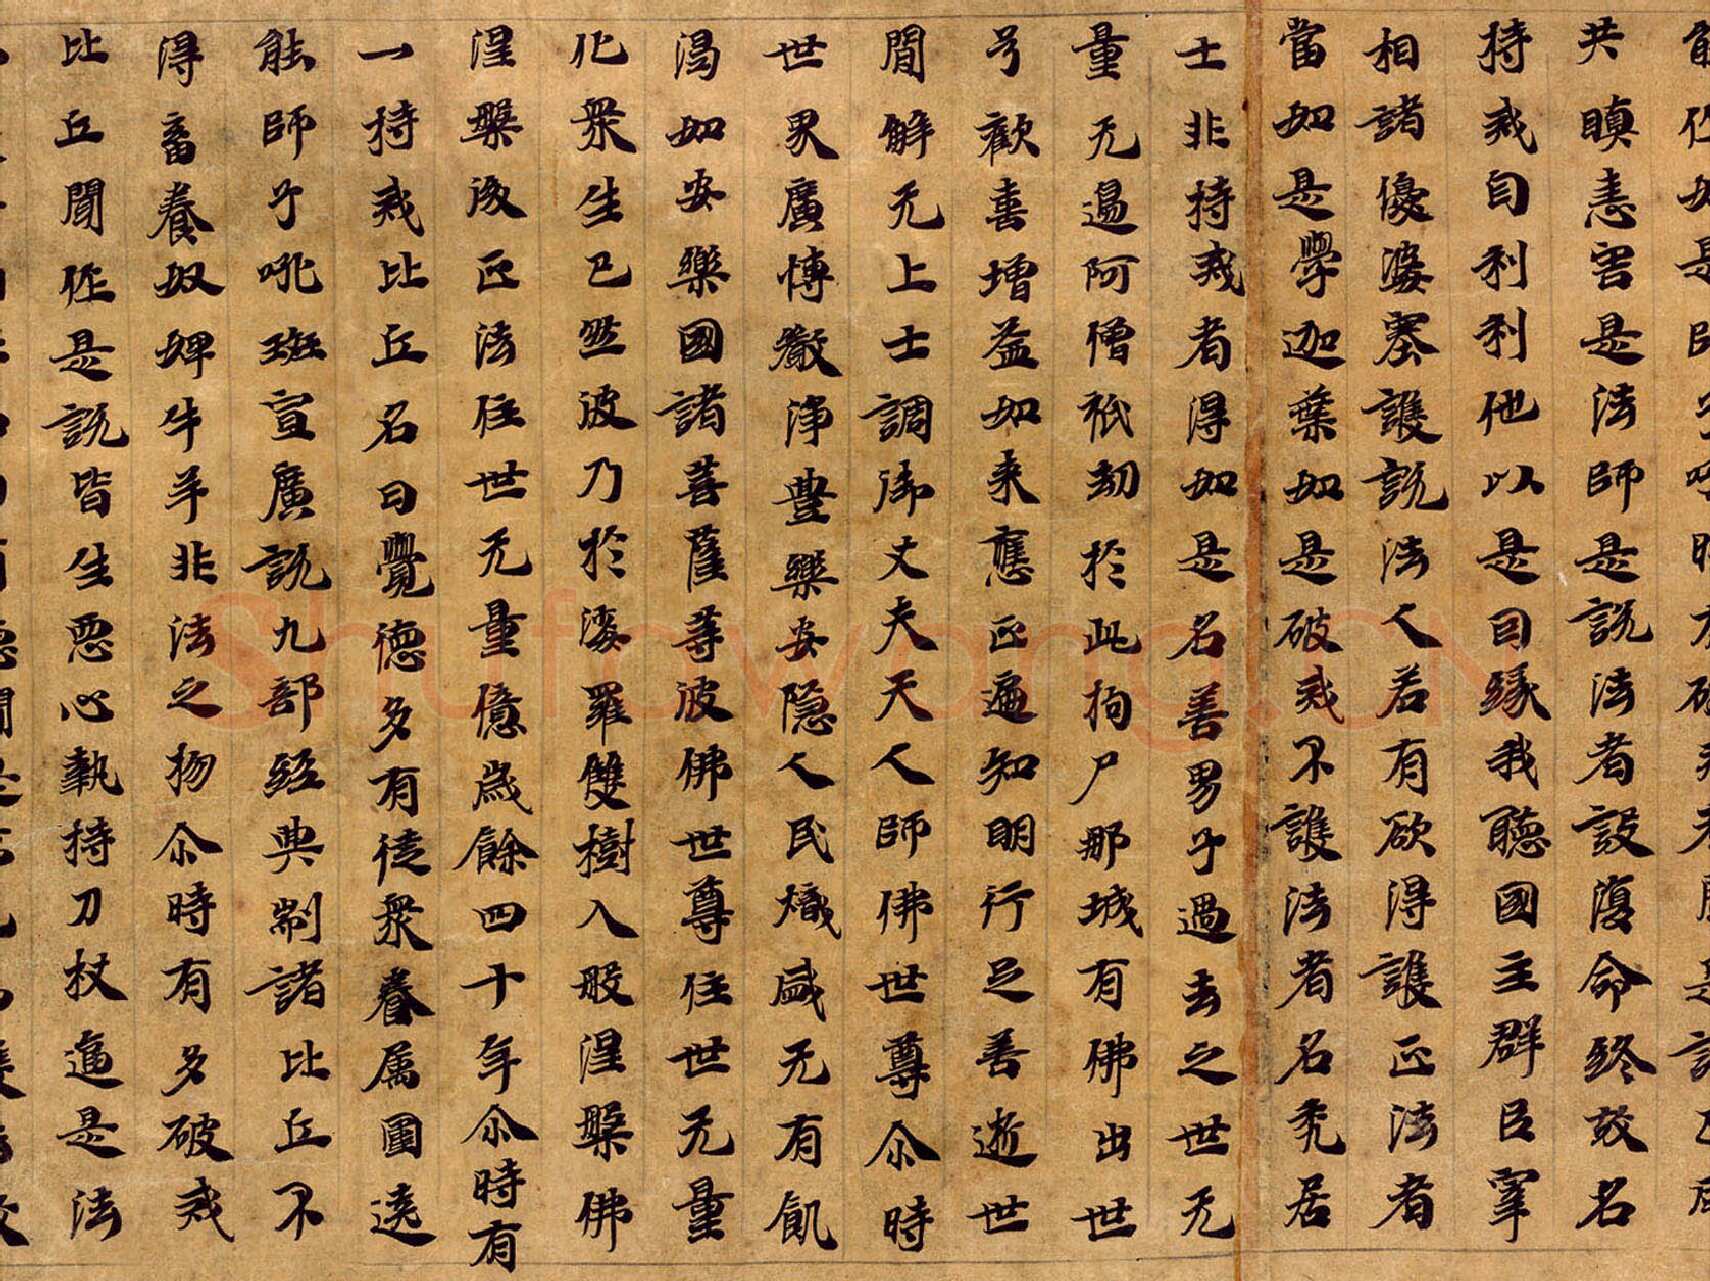 共瞋恚害是法師是說法者設復命終故名
持戒自利利他以是因緣我聽國主群臣宰
相諸優婆塞護說法人若有欲得護正法者
當如是學迦葉如是破戒不護法者名禿居
士非持戒者得如是名善男子過去之世无
量无邊阿僧祇劫於此拘尸那城有佛出世
号歡喜增益如來應正遍知明行足善逝世
間解无上士調御丈夫天人師佛世尊尒時
世界廣博嚴淨豐樂安隱人民熾盛无有飢
渴如安樂國諸菩薩等彼佛世尊住世无量
化衆生已然彼乃於娑羅雙樹入般涅槃佛
涅槃後正法住世无量億歲餘四十年尒時有
一持戒比丘名曰覺德多有徒衆眷屬圍遶
能師子吼班宣廣說九部經典制諸比丘不
得畜養奴婢牛羊非法之物尒時有多破戒
比丘聞作是說皆生惡心執持刀杖逼是法
Shufawang.CN